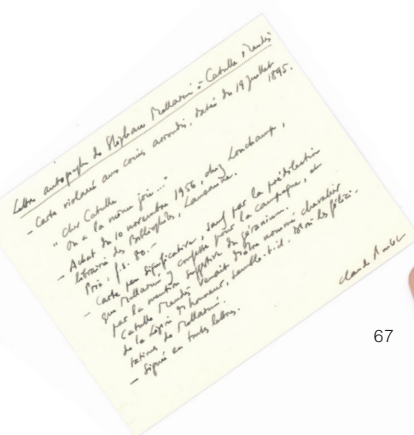 Lettre autographe de Stéphane Mallarmé à Catulle Mendès
– Carte violacée aux coins arrondis, datée du 19 juillet 1895.
"Cher Catulle
On a la même joie..."
– Achat du 10 novembre 1956, chez Lonchamp,
librairie des Bibliophiles, Lausanne.
Prix: frs. 80.–
– Carte peu significative, sauf par la prédilection
que Mallarmé y confesse pour la campagne, et
par la mention suggestive du géranium.
Catulle Mendès venait d'être nommé chevalier
de la Légion d'honneur, semble-t-il. D'où les félici-
tations de Mallarmé.
– Signée en toutes lettres.
67